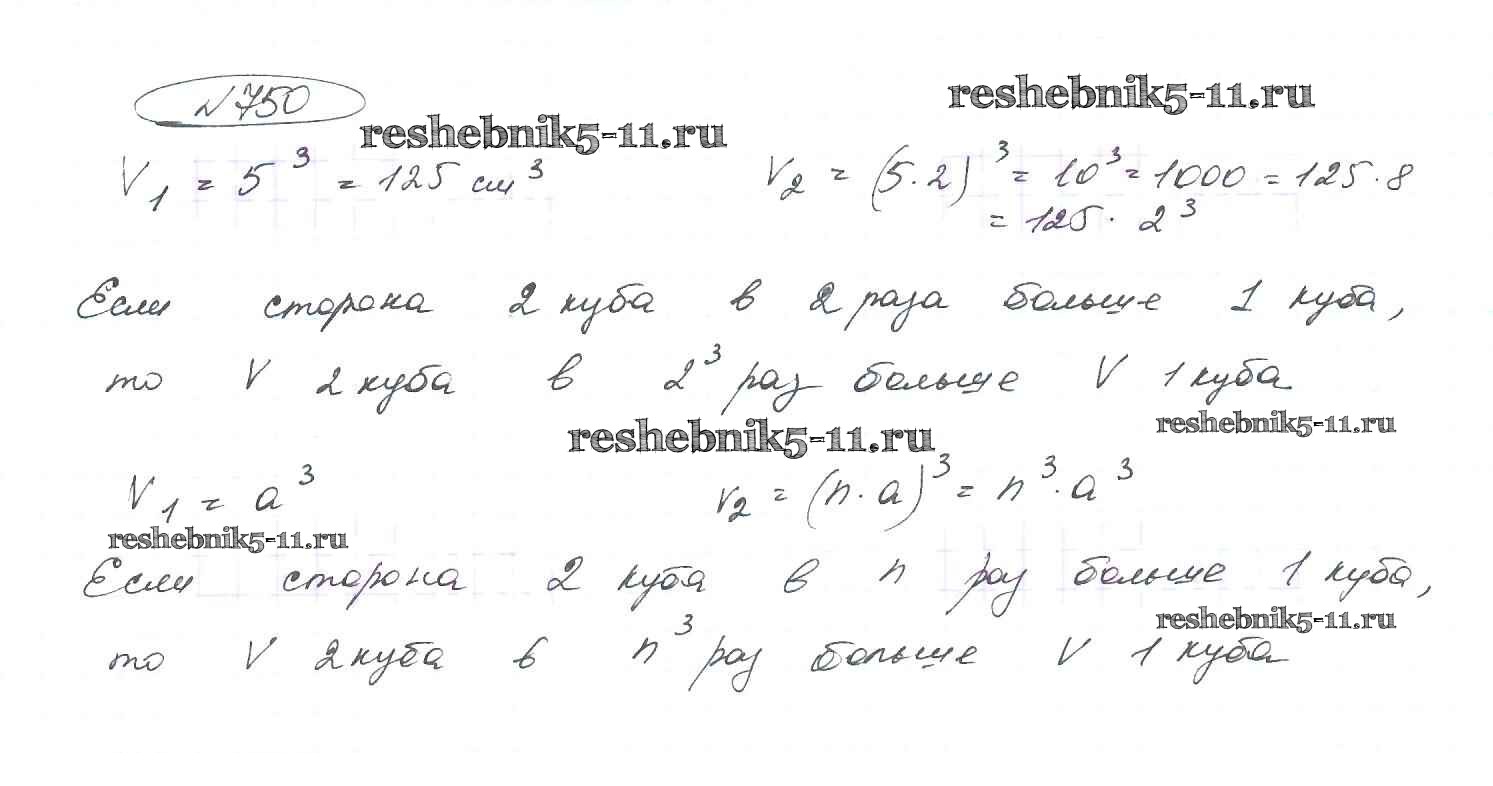 №750
reshebnik5-11.ru
reshebnik5-11.ru
V₁ = 5³ = 125 см³
V₂ = (5·2)³ = 10³ = 1000 = 125·8
= 125·2³
Если сторона 2 куба в 2 раза больше 1 куба,
то V 2 куба в 2³ раз больше V 1 куба
reshebnik5-11.ru
reshebnik5-11.ru
V₁ = a³
V₂ = (n·a)³ = n³·a³
reshebnik5-11.ru
Если сторона 2 куба в n раз больше 1 куба,
reshebnik5-11.ru
то V 2 куба в n³ раз больше V 1 куба